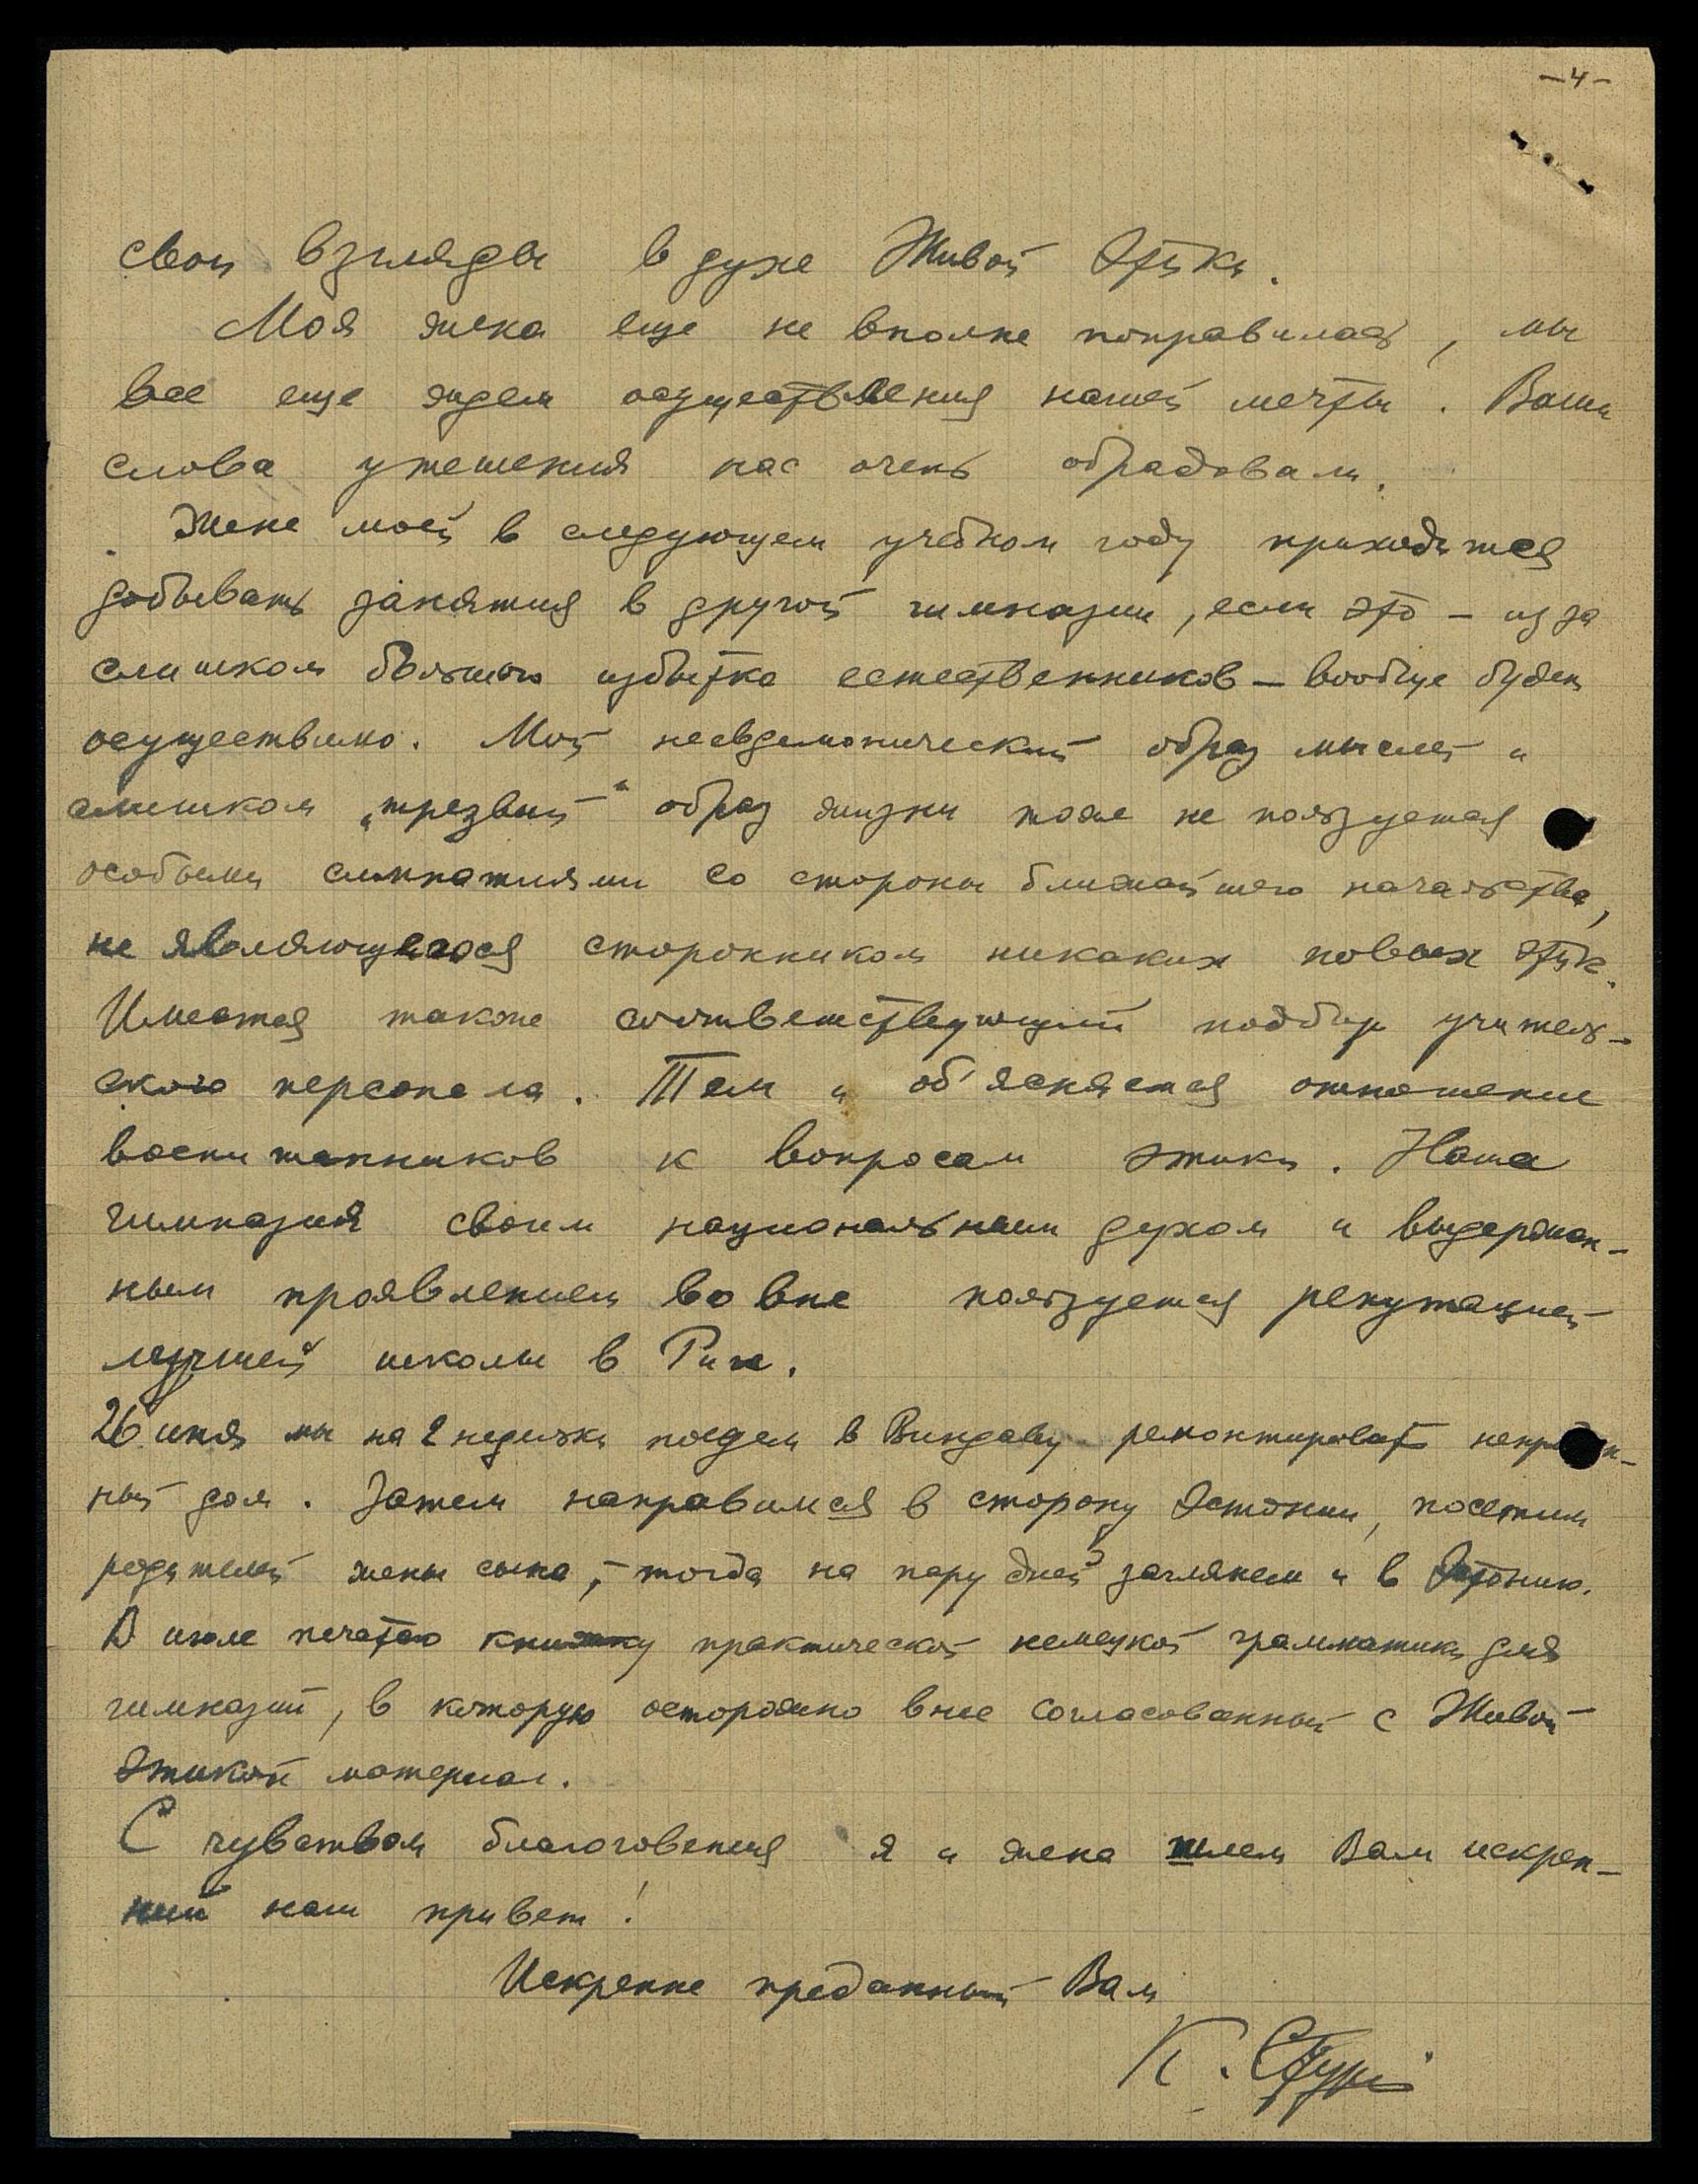 –4–
свои взгляды в духе Живой Этики.
Моя жена еще не вполне поправилась, мы
все еще ждем осуществления нашей мечты. Ваши
слова утешения нас очень обрадовали.
Жене моей в следующем учебном году приходится
добывать занятия в другой гимназии, если это – из за
слишком большого избытка естественников – вообще будет
осуществимо. Мой неевдемонический образ мыслей и
слишком „трезвый“ образ жизни тоже не пользуется
особыми симпатиями со стороны ближайшего начальства,
не являющегося сторонником никаких новых этик.
Имеется также соответствующий подбор учитель-
ского персонала. Тем и об'ясняется отношение
воспитанников к вопросам этики. Наша
гимназия своим национальным духом и выдержан-
ным проявлением во вне пользуется репутацией
лучшей школы в Риге.
26 июня мы на 2 недельки поедем в Виндаву ремонтировать
ный дом. Затем направимся в сторону Эстонии, посетим
родителей жены сына, – тогда на пару дней заглянем и в Эстонию.
В июле печатаю книжку практической немецкой грамматики для
гимназий, в которую осторожно внес согласованный с Живой
Этикой материал.
С чувством благоговения я и жена шлем Вам искрен-
ний наш привет!
Искренне преданный Вам
К.